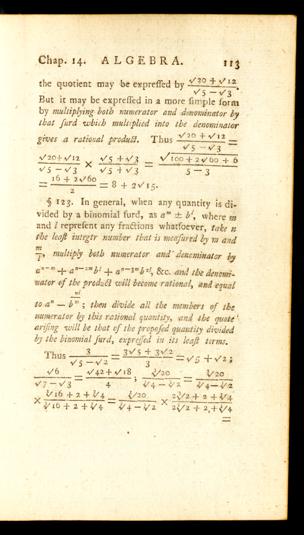 Chap. 14. ALGEBRA. 113
the quotient may be expreſſed by (√20 + √12)/(√5 − √3).
But it may be expreſſed in a more ſimple form
by multiplying both numerator and denominator by
that ſurd which multiplied into the denominator
gives a rational product. Thus (√20 + √12)/(√5 − √3) =
(√20 + √12)/(√5 − √3) × (√5 + √3)/(√5 + √3) = (√100 + 2√60 + 6)/(5 − 3)
= (16 + 2√60)/2 = 8 + 2√15.
§ 123. In general, when any quantity is di-
vided by a binomial ſurd, as aᵐ ± bˡ, where m
and l repreſent any fractions whatſoever, take n
the leaſt integer number that is meaſured by m and
m/l, multiply both numerator and denominator by
aⁿ⁻ᵐ + aⁿ⁻²ᵐbˡ + aⁿ⁻³ᵐb²ˡ, &c. and the denomi-
nator of the product will become rational, and equal
to aⁿ − b^(nl/m); then divide all the members of the
numerator by this rational quantity, and the quote
ariſing will be that of the propoſed quantity divided
by the binomial ſurd, expreſſed in its leaſt terms.
Thus 3/(√5 − √2) = (3√5 + 3√2)/3 = √5 + √2;
√6/(√7 − √3) = (√42 + √18)/4;
=